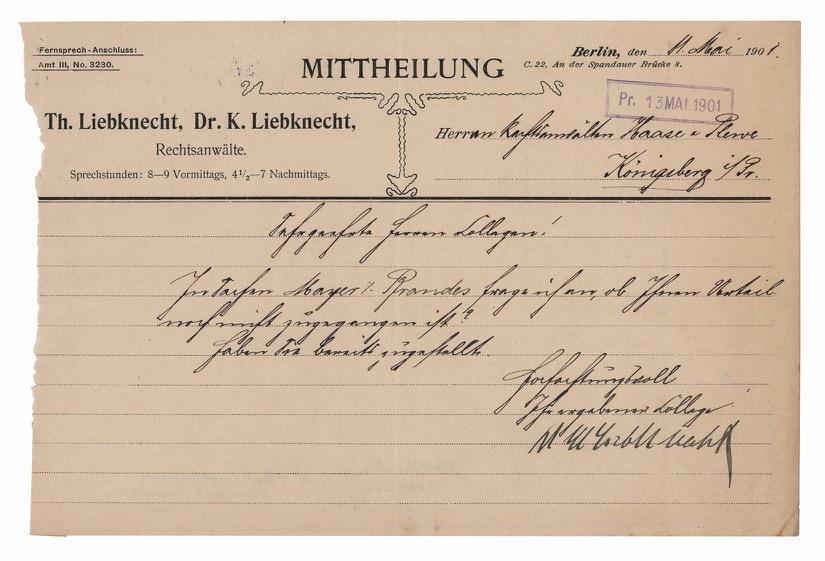 Fernsprech-Anschluss:
Amt III, No. 3230.
MITTHEILUNG
Berlin, den 11. Mai 1901.
C. 22, An der Spandauer Brücke 8.
Pr. 13 MAI 1901
Th. Liebknecht, Dr. K. Liebknecht,
Rechtsanwälte.
Sprechstunden: 8—9 Vormittags, 4½—7 Nachmittags.
Herren Rechtsanwälten Haase u Plewe
Königsberg i/Pr.
Sehrgeehrte Herren Collegen!
In Sachen Mayer ./. Brandes frage ich an, ob Ihnen Urteil
noch nicht zugegangen ist?
Haben Sie bereits zugestellt.
Hochachtungsvoll
Ihr ergebener College
Liebknecht